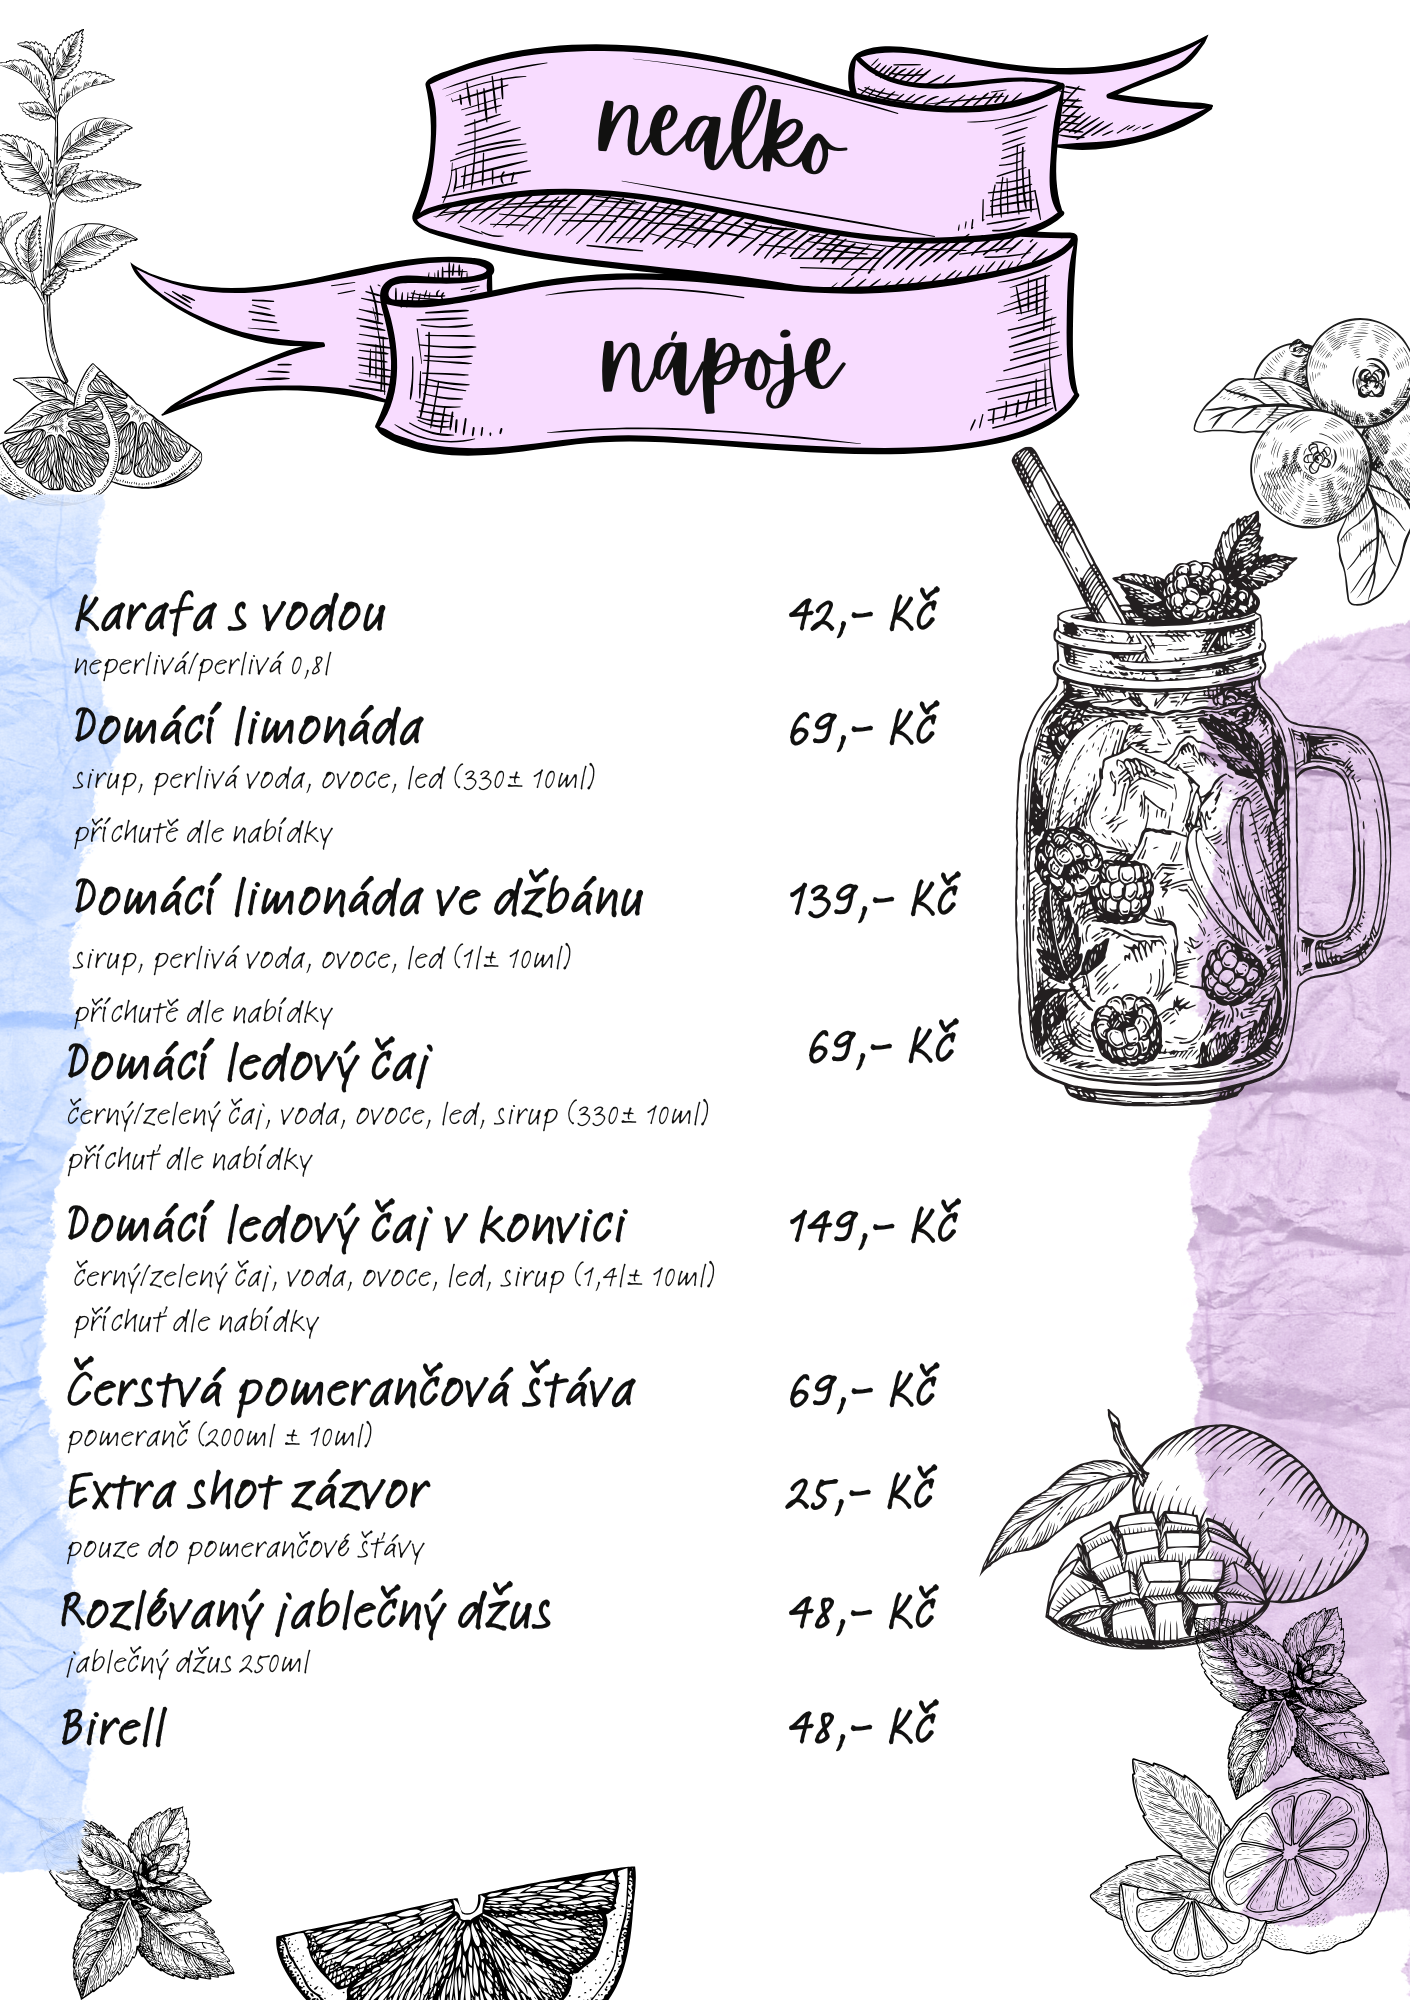 nealko
nápoje
Karafa s vodou 42,– Kč
neperlivá/perlivá 0,8l
Domácí limonáda 69,– Kč
sirup, perlivá voda, ovoce, led (330± 10ml)
příchutě dle nabídky
Domácí limonáda ve džbánu 139,– Kč
sirup, perlivá voda, ovoce, led (1l± 10ml)
příchutě dle nabídky
Domácí ledový čaj 69,– Kč
černý/zelený čaj, voda, ovoce, led, sirup (330± 10ml)
příchuť dle nabídky
Domácí ledový čaj v konvici 149,– Kč
černý/zelený čaj, voda, ovoce, led, sirup (1,4l± 10ml)
příchuť dle nabídky
Čerstvá pomerančová štáva 69,– Kč
pomeranč (200ml ± 10ml)
Extra shot zázvor 25,– Kč
pouze do pomerančové šťávy
Rozlévaný jablečný džus 48,– Kč
jablečný džus 250ml
Birell 48,– Kč